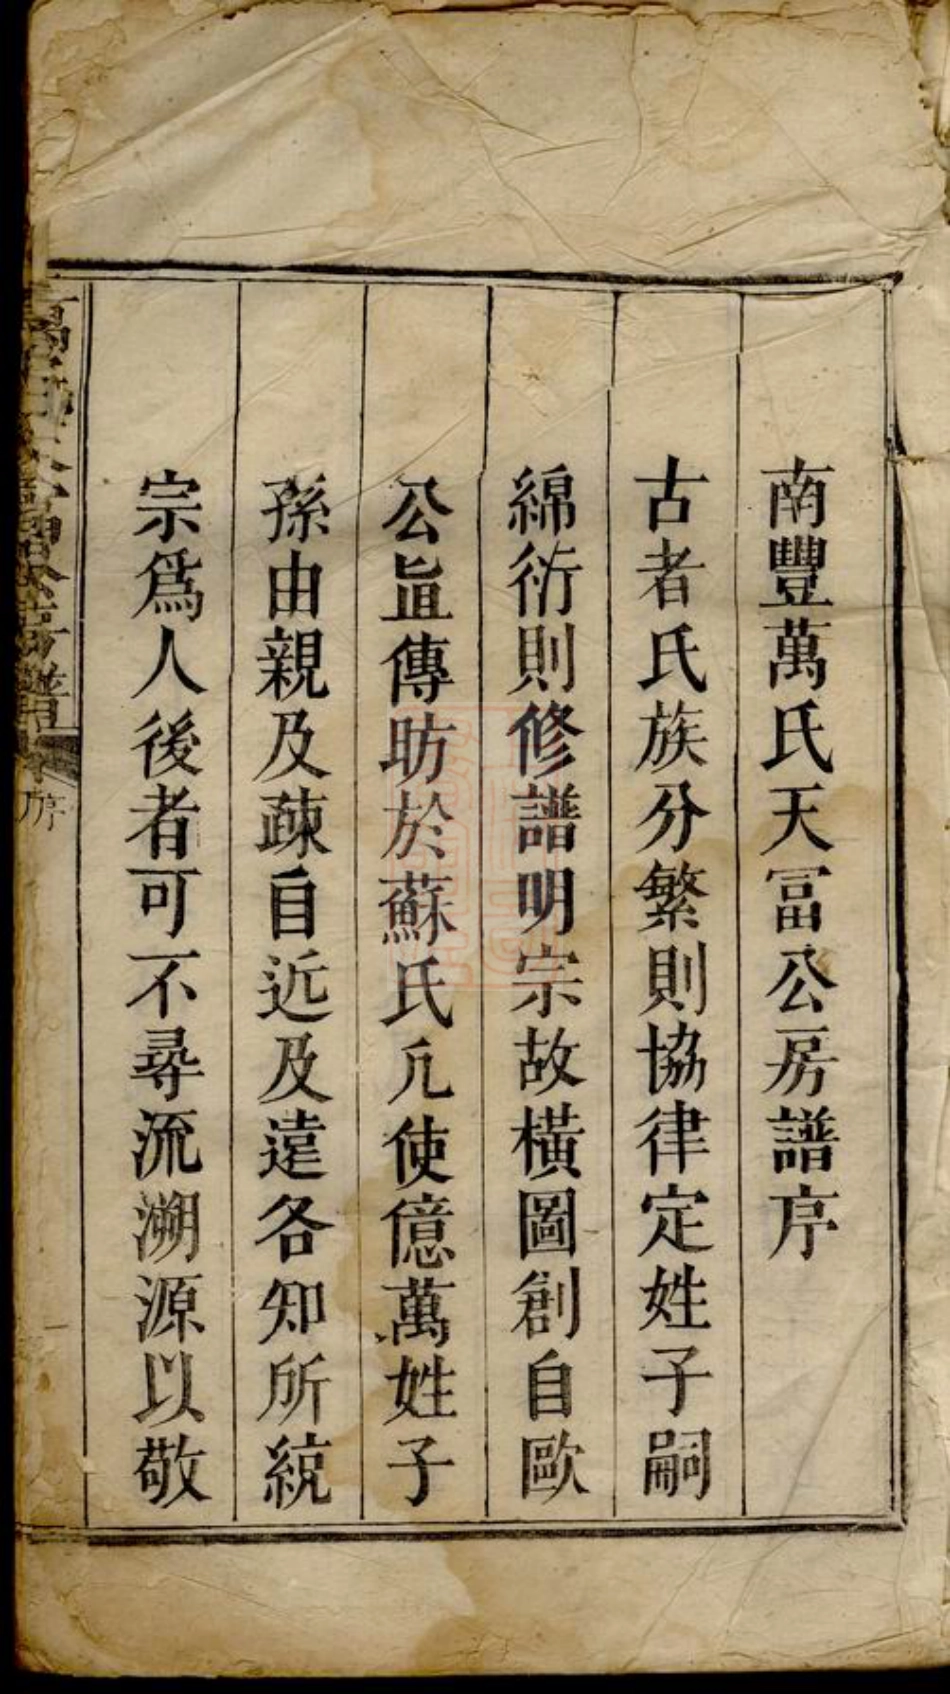 南豐萬氏天冨公房譜序
古者氏族分繁則協律定姓子嗣
綿衍則修譜明宗故橫圖創自歐
公直傳昉於蘇氏凢使億萬姓子
孫由親及疎自近及遠各知所統
宗爲人後者可不尋流溯源以敬
序